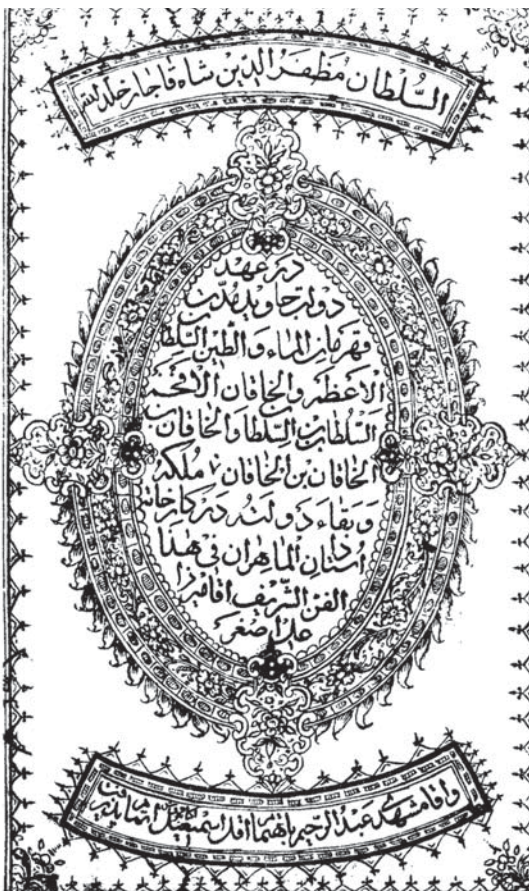 السُّلْطَان مُظَفَّرُ الدّين شاه قاجار خلد الله
در عهد
دولت جاوید
قهرمان الماء والطین السلطا
الاعظم والخاقان الافخم
السلطان بن السلطان والخاقان
الخاقان بن الخاقان ملکه
وبقاء دولته در کارخانه
استادان الماهران فی هذا
الفن الشّریف اقا میرزا
علی اصغر
و اقا مشهدی عبد الرحیم باهتمام اقل اسمعیل